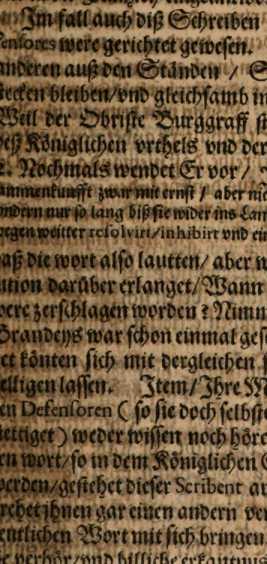 Im fall auch diß Schreiben
fensores were gerichtet gewesen.
anderen auß den Ständen / S
stecken bleiben/vnd gleichsamb in
Weil der Obriste Burggraff st
deß Königlichen vrthels vnd der
Nochmals wendet Er vor /
sammenkunfft zwar mit ernst / aber nic
ondern nur so lang biß sie wider ins Lan
wegen weitter resolvirt/inhibirt vnd ein
aß die wort also lautten/ aber w
ution darüber erlanget/Wann
were zerschlagen worden? Nimm
Brandeys war schon einmal ges
ct könten sich mit dergleichen
elligen lassen. Item/ Ihre M
en Defensoren ( so sie doch selbste
tettiget ) weder wissen noch höre
en wort/so in dem Königlichen
werden/gestehet dieser Scribent a
rchet jhnen gar einen andern ver
entlichen Wort mit sich bringen
verhör/vnd billiche erkantnus